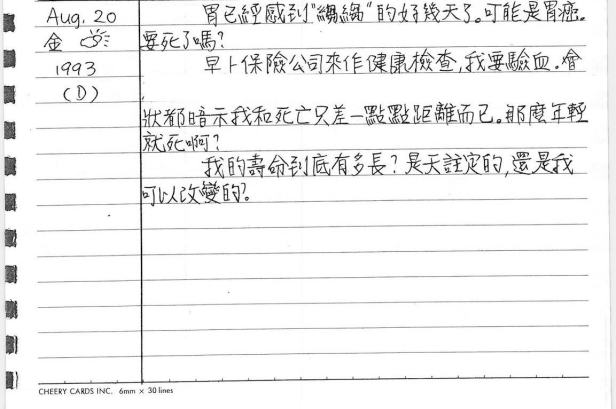 Aug. 20
金
1993
(D)
胃已經感到"繃繃"的好幾天了。可能是胃癌。
要死了嗎?
早上保險公司來作健康檢查,我要驗血.會
狀都暗示我和死亡只差一點點距離而已。那麼年輕
就死啊?
我的壽命到底有多長?是天註定的,還是我
可以改變的?
CHEERY CARDS INC. 6mm × 30 lines